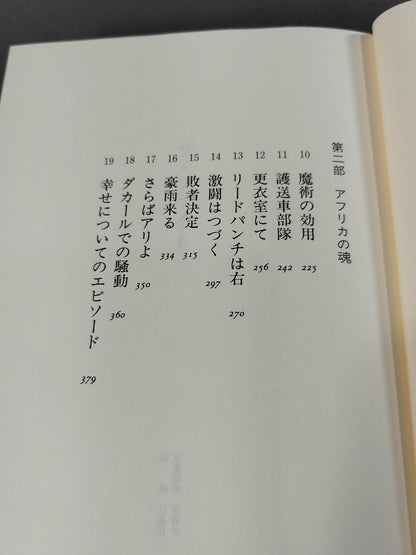 第二部 アフリカの魂
10 魔術の効用 225
11 護送車部隊 242
12 更衣室にて 256
13 リードパンチは右 270
14 激闘はつづく 297
15 敗者決定 315
16 豪雨来る 334
17 さらばアリよ 350
18 ダカールでの騒動 360
19 幸せについてのエピソード 379